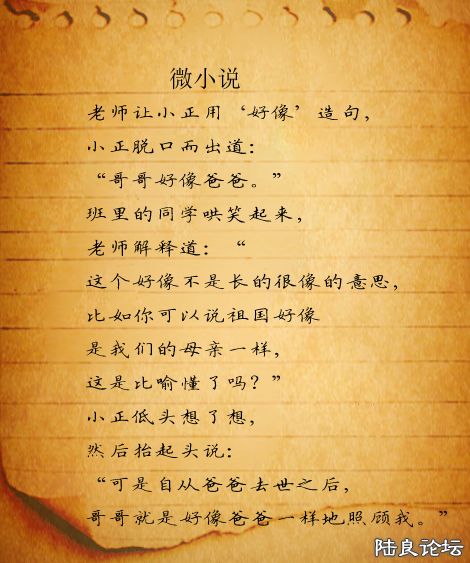 微小说
老师让小正用‘好像’造句，
小正脱口而出道：
“哥哥好像爸爸。”
班里的同学哄笑起来，
老师解释道：“
这个好像不是长的很像的意思，
比如你可以说祖国好像
是我们的母亲一样，
这是比喻懂了吗？”
小正低头想了想，
然后抬起头说：
“可是自从爸爸去世之后，
哥哥就是好像爸爸一样地照顾我。”
陆良论坛